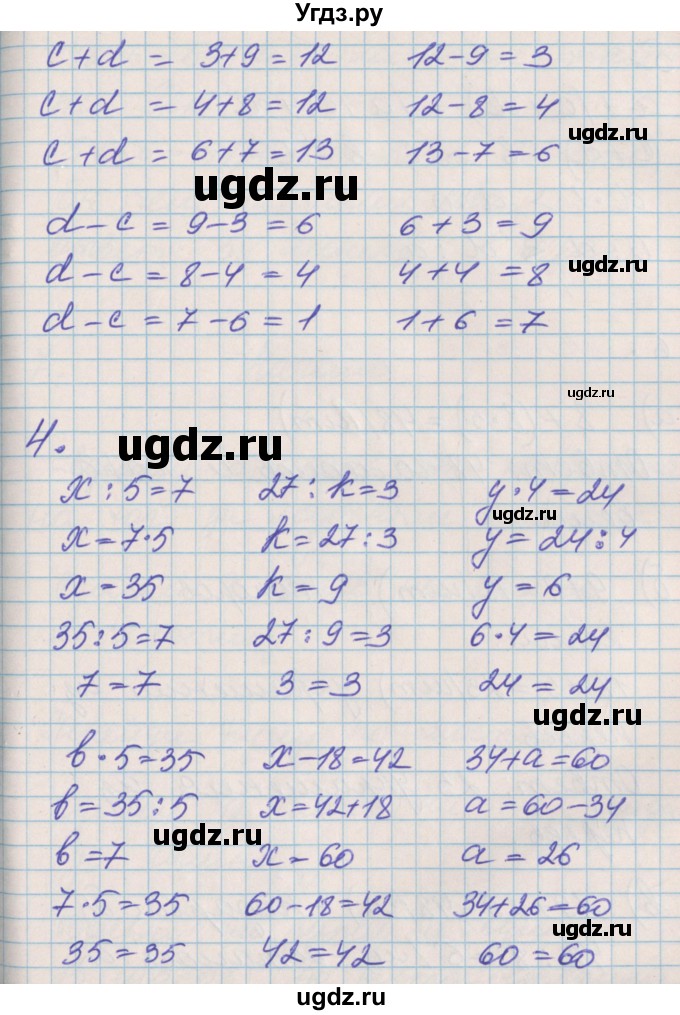 Угдз.ру
c + d = 3+9 = 12 12 - 9 = 3
c + d = 4+8 = 12 12 - 8 = 4
ugdz.ru
c + d = 6+7 = 13 13 - 7 = 6
ugdz.ru
d - c = 9 - 3 = 6 6 + 3 = 9
d - c = 8 - 4 = 4 4 + 4 = 8
ugdz.ru
d - c = 7 - 6 = 1 1 + 6 = 7
ugdz.ru
4.
ugdz.ru
x : 5 = 7 27 : k = 3 y · 4 = 24
ugdz.ru
x = 7 · 5 k = 27 : 3 y = 24 : 4
x = 35 k = 9 y = 6
35 : 5 = 7 27 : 9 = 3 6 · 4 = 24
7 = 7 3 = 3 24 = 24
ugdz.ru
в · 5 = 35 x - 18 = 42 34 + a = 60
в = 35 : 5 x = 42 + 18 a = 60 - 34
ugdz.ru
в = 7 x = 60 a = 26
7 · 5 = 35 60 - 18 = 42 34 + 26 = 60
ugdz.ru
35 = 35 42 = 42 60 = 60
ugdz.ru